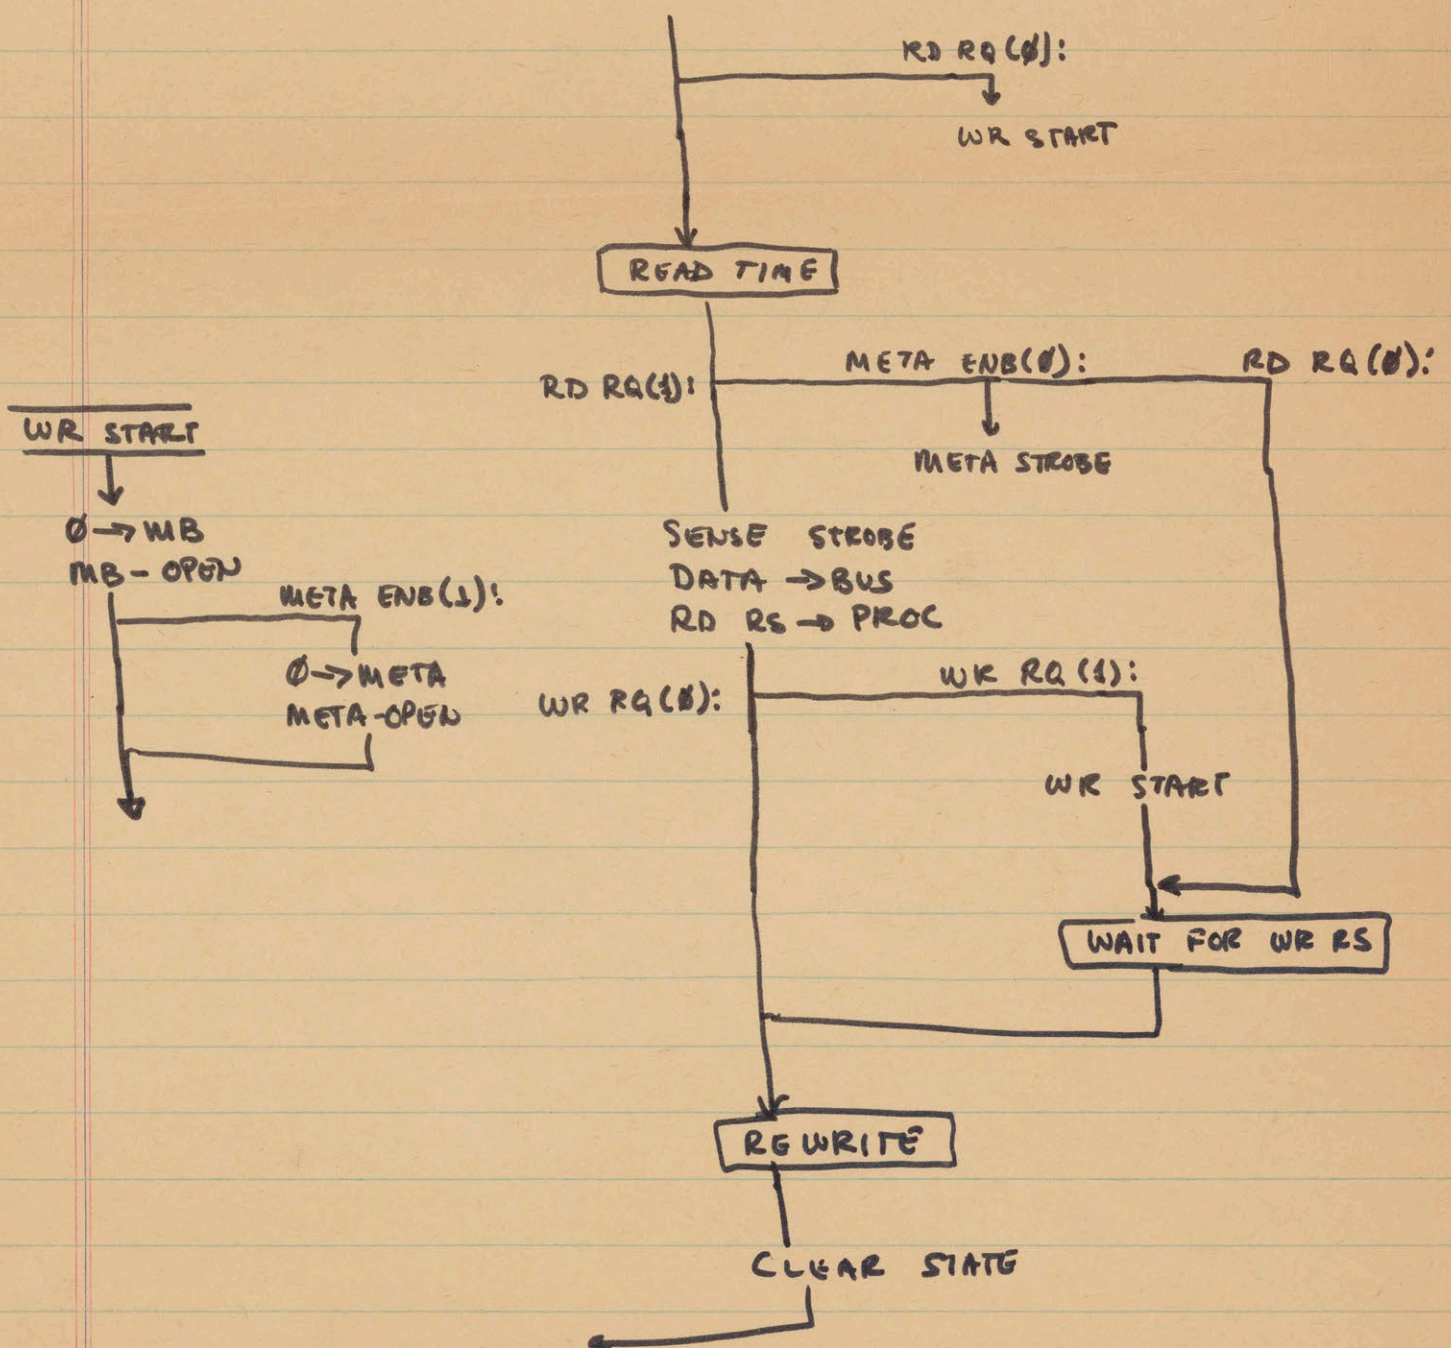 RD RQ(Ø):
WR START
READ TIME
META ENB(Ø): RD RQ(Ø):
RD RQ(1):
META STROBE
WR START
Ø→MB
MB-OPEN
META ENB(1):
Ø→META
META-OPEN
SENSE STROBE
DATA→BUS
RD RS→PROC
WR RQ(1):
WR RQ(Ø):
WR START
WAIT FOR WR RS
REWRITE
CLEAR STATE